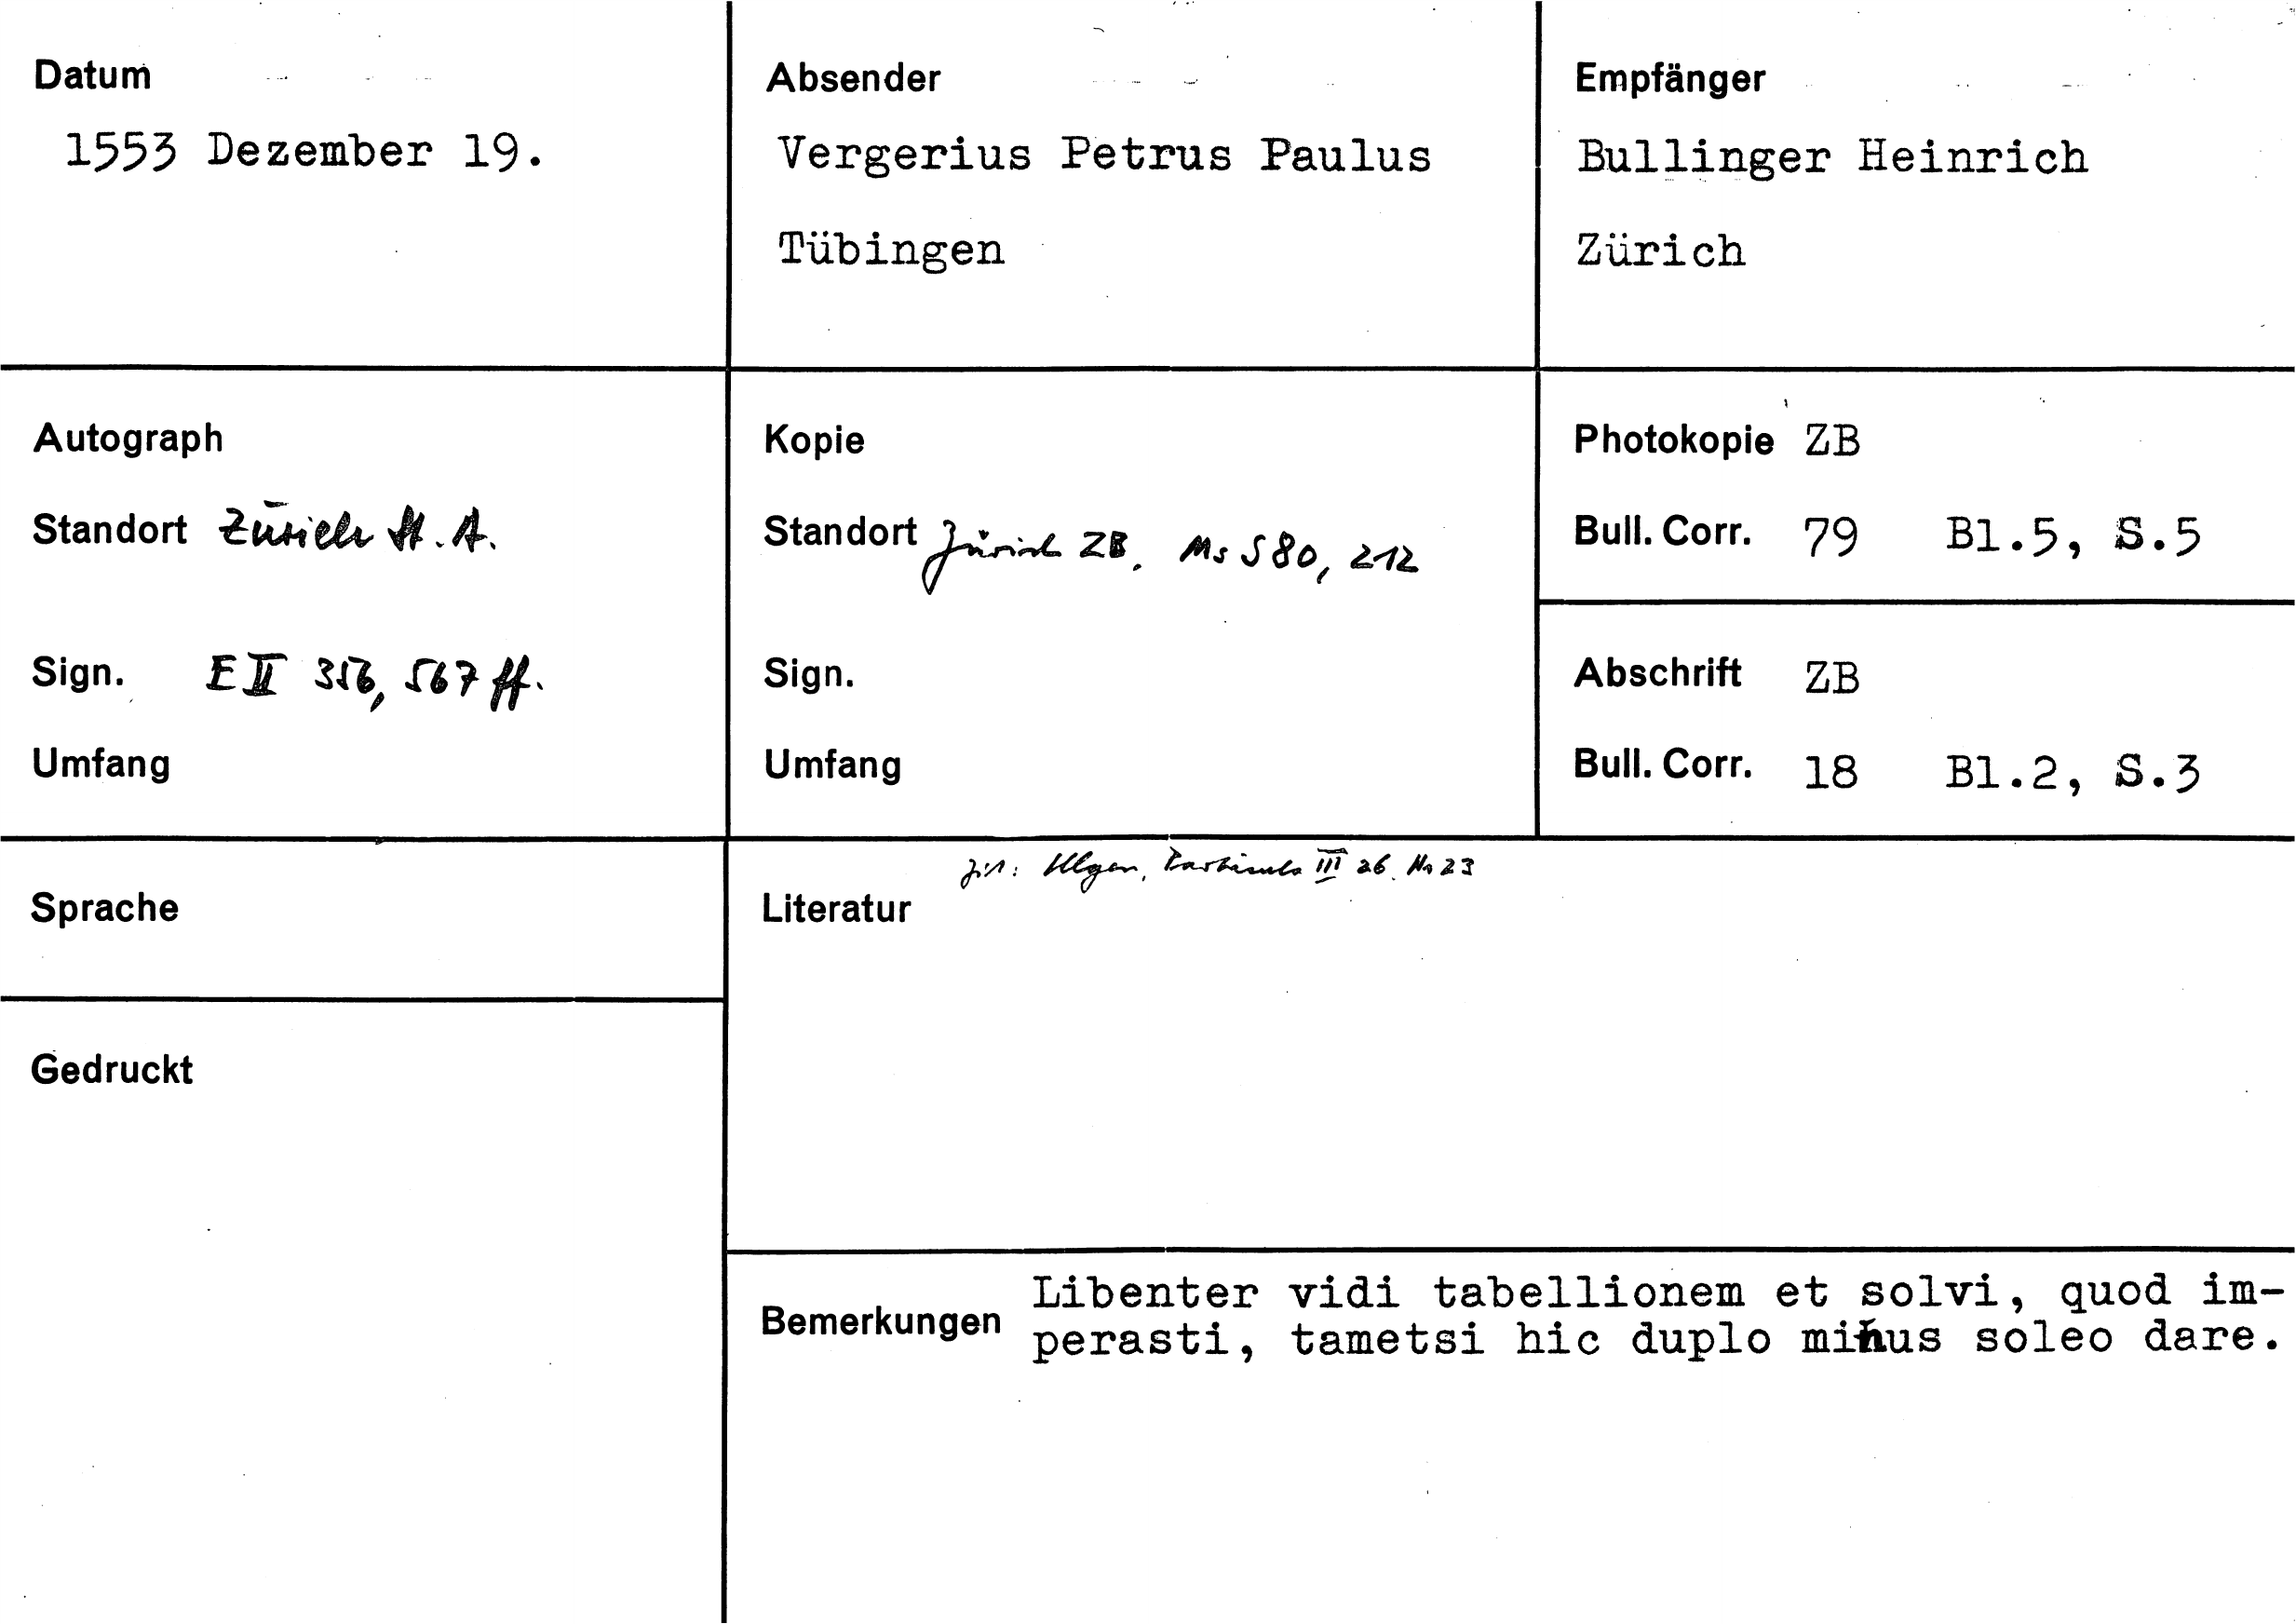 Datum
1553 Dezember 19.
Absender
Vergerius Petrus Paulus
Tübingen
Empfänger
Bullinger Heinrich
Zürich
Autograph
Standort Zürich St. A.
Sign. E II 356, 567 ff.
Umfang
Kopie
Standort Zürich ZB. Ms S 80, 212
Sign.
Umfang
Photokopie ZB
Bull. Corr. 79 Bl.5, S.5
Abschrift ZB
Bull. Corr. 18 Bl.2, S.3
Sprache
Gedruckt
zit: III 26. No 23
Literatur
Bemerkungen
Libenter vidi tabellionem et solvi, quod im-
perasti, tametsi hic duplo minus soleo dare.